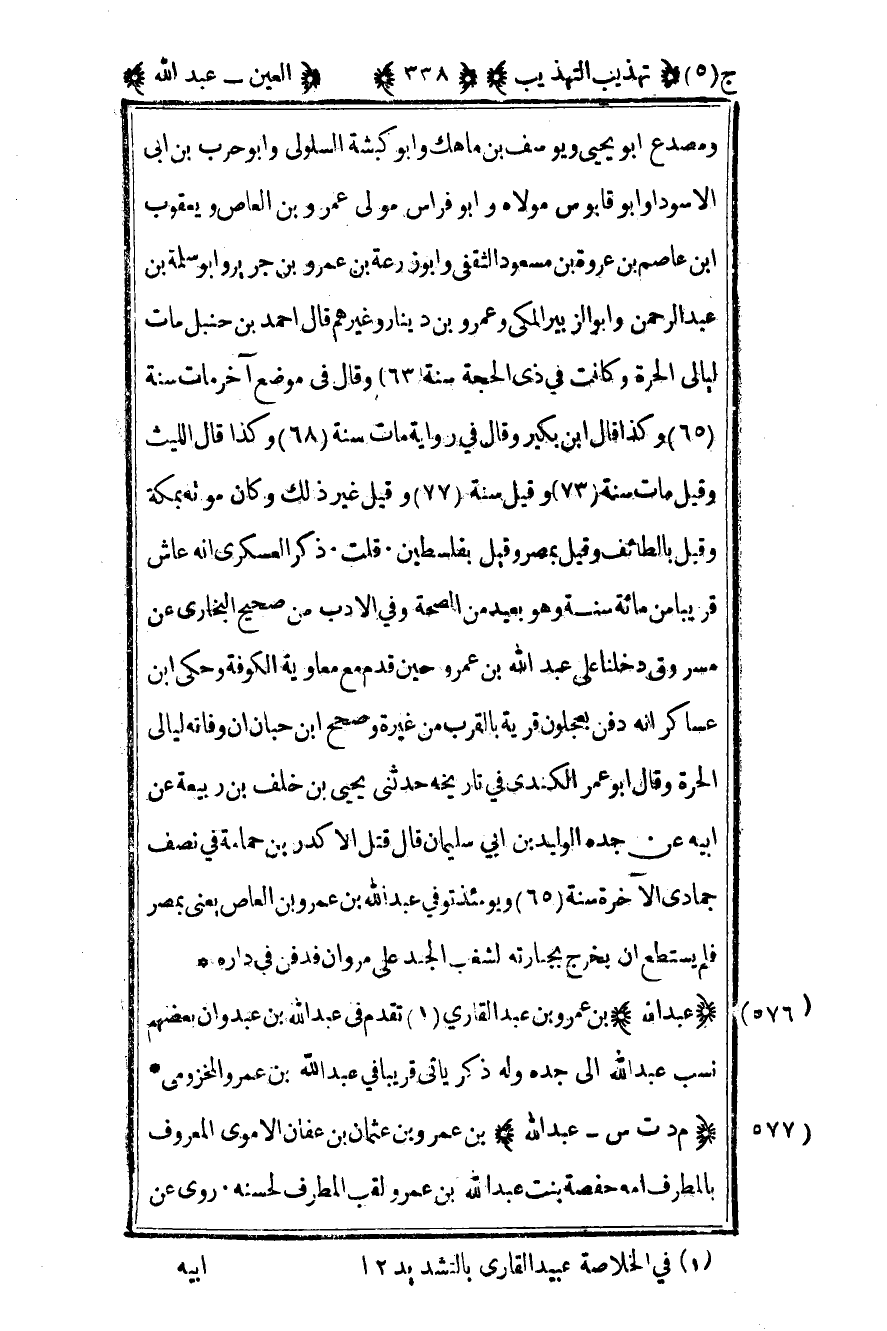 ج(٥) ﴿ تهذيب التهذيب ﴾ ﴿ ٣٣٨ ﴾ ﴿ العين ـ عبد الله ﴾
ومصدع ابو يحيى ويوسف بن ماهك وابو كبشة السلولى وابوحرب بن ابى
الاسود اوابو قابوس مولاه و ابو فراس مولى عمرو بن العاص و يعقوب
ابن عاصم بن عروة بن مسعود الثقفى وابوزرعة بن عمرو بن جرير وابوسلمة بن
عبدالرحمن وابوالزبير المكى وعمرو بن دينار وغيرهم قال احمد بن حنبل مات
ليالى الحرة وكانت في ذى الحجة سنة (٦٣) وقال فى موضع آخر مات سنة
(٦٥) وكذا قال ابن بكير وقال في رواية مات سنة (٦٨) وكذا قال الليث
وقيل مات سنة (٧٣) و قيل سنة (٧٧) و قيل غير ذلك وكان موته بمكة
وقيل بالطائف وقيل بمصر وقيل بفلسطين ۰ قلت ۰ ذكر العسكرى انه عاش
قريبا من مائة سنة وهو بعيد من الصحة وفي الادب من صحيح البخارى عن
مسروق دخلنا على عبد الله بن عمرو حين قدم مع معاوية الكوفة وحكى ابن
عساكر انه دفن بعجلون قرية بالقرب من غيرة وصحح ابن حبان ان وفاته ليالى
الحرة وقال ابو عمر الكندى في تاريخه حدثنى يحيى بن خلف بن ربيعة عن
ابيه عن جده الوليد بن ابي سليمان قال قتل الاكدر بن حمامة في نصف
جمادى الآخرة سنة (٦٥) ويومئذ توفي عبدالله بن عمرو بن العاص يعنى بمصر
فلم يستطع ان يخرج بجنازته لشغب الجند على مروان فدفن في داره *
(٥٧٦) ﴿ عبدالله ﴾ بن عمرو بن عبد القاري (١) تقدم فى عبدالله بن عبد وان بعضهم
نسب عبدالله الى جده وله ذكر ياتى قريبا في عبدالله بن عمرو المخزومى *
(٥٧٧ ﴿ م د ت س ـ عبدالله ﴾ بن عمرو بن عثمان بن عفان الاموى المعروف
بالمطرف امه حفصة بنت عبدالله بن عمرو لقب المطرف لحسنه ۰ روى عن
(١) في الخلاصة عبيد القارى بالتشديد ١٢ ابيه